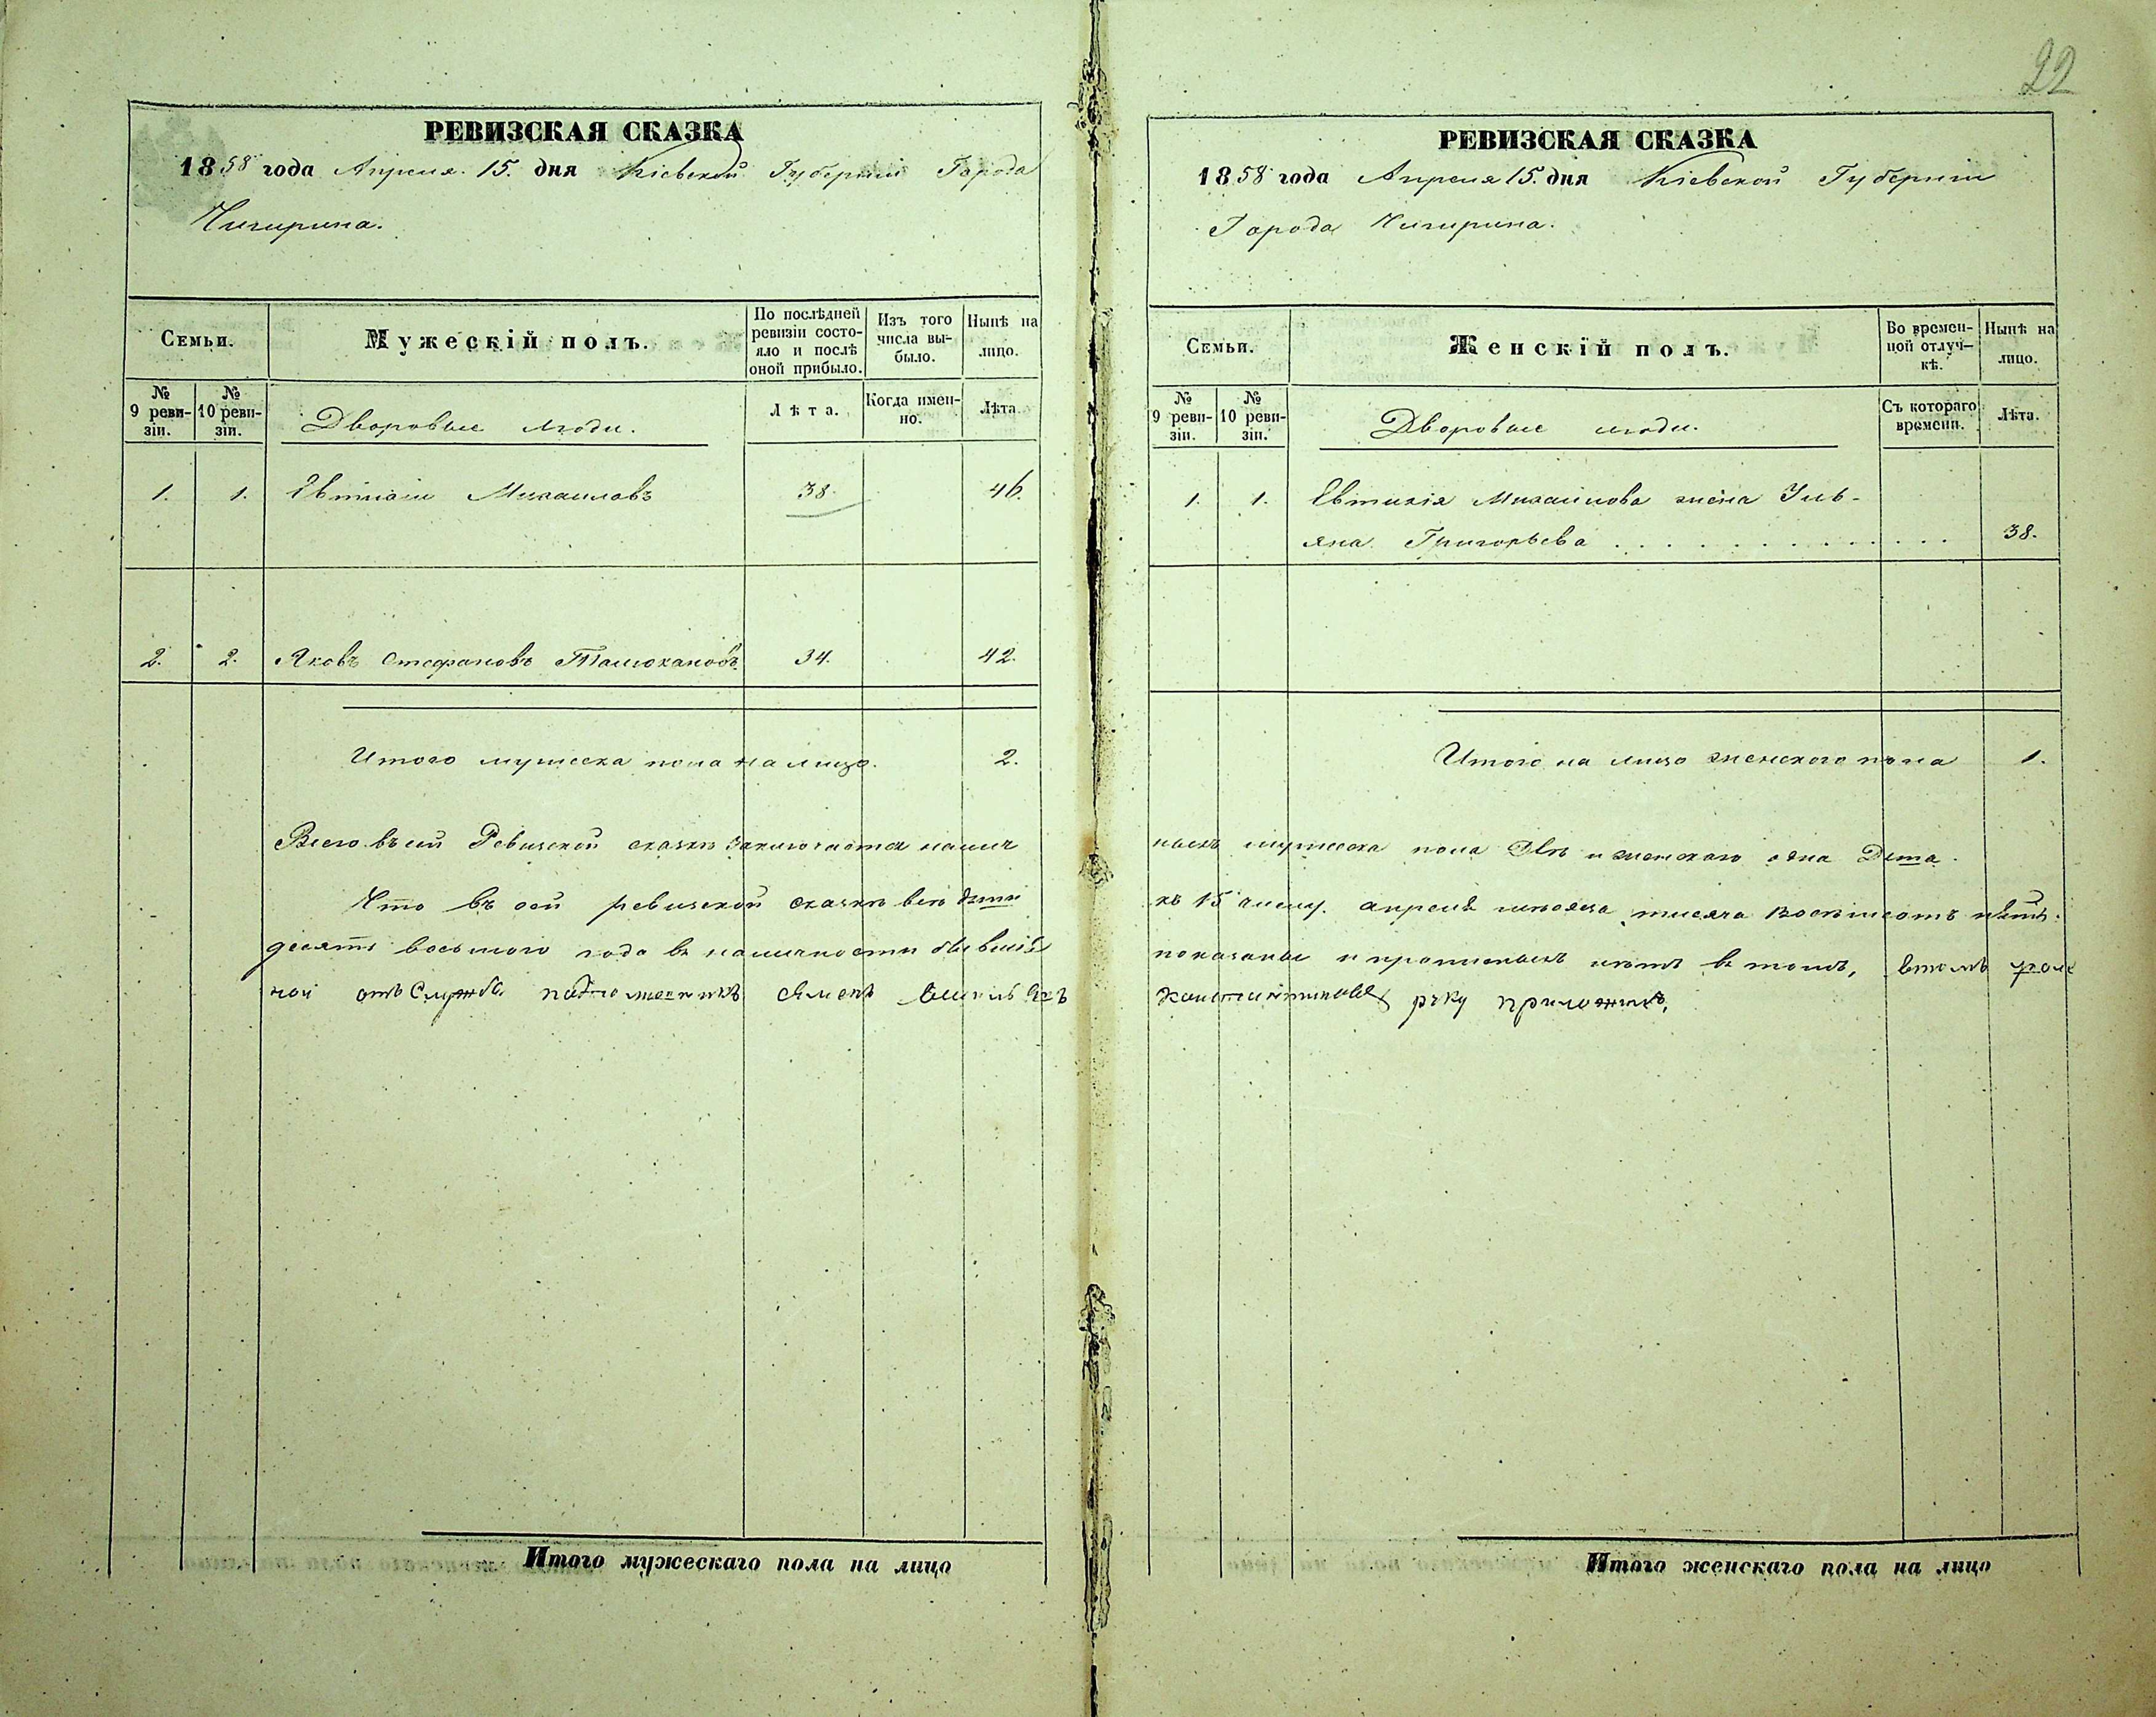 22
РЕВИЗСКАЯ СКАЗКА
1858 года Апреля 15. дня Кіевской Губерніи Города
Чигирина.
Семьи.
Мужескій полъ.
По послѣдней
ревизіи состо-
яло и послѣ
оной прибыло.
Изъ того
числа вы-
было.
Нынѣ на
лицо.
№
9 реви-
зіи.
№
10 реви-
зіи.
Дворовые люди.
Лѣта.
Когда имен-
но.
Лѣта.
1. 1. Михаиловъ 38. 46.
2. 2. Яковъ Стефановъ 34. 42.
Итого мужеска пола на лицо. 2.
Всего въ сей Ревизской сказкѣ заключается налич
Что въ сей ревизской сказкѣ всѣ
десятъ восьмого года в наличности бывшіе
ной отъ Службы
Итого мужескаго пола на лицо
РЕВИЗСКАЯ СКАЗКА
1858 года Апреля 15. дня Кіевской Губерніи
Города Чигирина.
Семьи.
Женскій полъ.
Во времен-
ной отлуч-
кѣ.
Нынѣ на
лицо.
№
9 реви-
зіи.
№
10 реви-
зіи.
Дворовые люди.
Съ котораго
времени.
Лѣта.
1. 1. Евтихія Михаилова жена Уль-
яна Григорьева . . . . . . . . . . . . 38.
Итого на лицо женского пола 1.
ныхъ мужеска пола двѣ и женскаго одна
къ 15 числу апреля мѣсяца тысяча восемьсотъ пять
показаны и прописныхъ нѣтъ в томъ, втомъ
руку приложилъ,
Итого женскаго пола на лицо